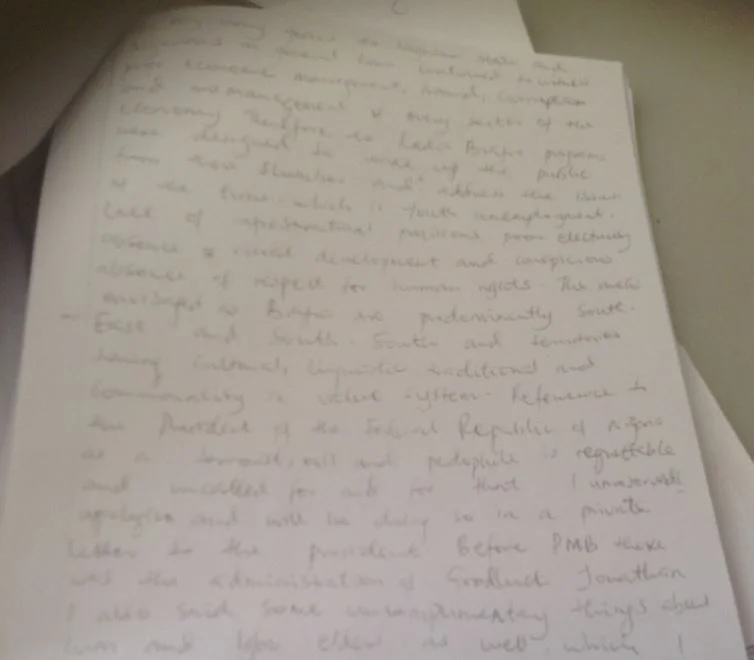 and
in general have continued to witness
poor economic management, fraud, corruption
and mismanagement of every sector of the
economy therefore the Radio Biafra programs
were designed to wake up the public
from their slumber and address the issues
of the time which is Youth unemployment,
lack of infrastructural provisions poor electricity
absence of rural development and conspicious
absence of respect for human rights. The areas
envisaged as Biafra are predominently South-
East and South-South and
having Cultural, linguistic traditional and
commonality in value system. Reference to
the President of the Federal Republic of Nigeria
as a terrorist, evil and pedophile is regrettable
and uncalled for and for that I unreservedly
apologise and will be doing so in a private
letter to the president Before PMB there
was the administration of Goodluck Jonathan
I also said some uncomplimentary things about
him and elders as well which I